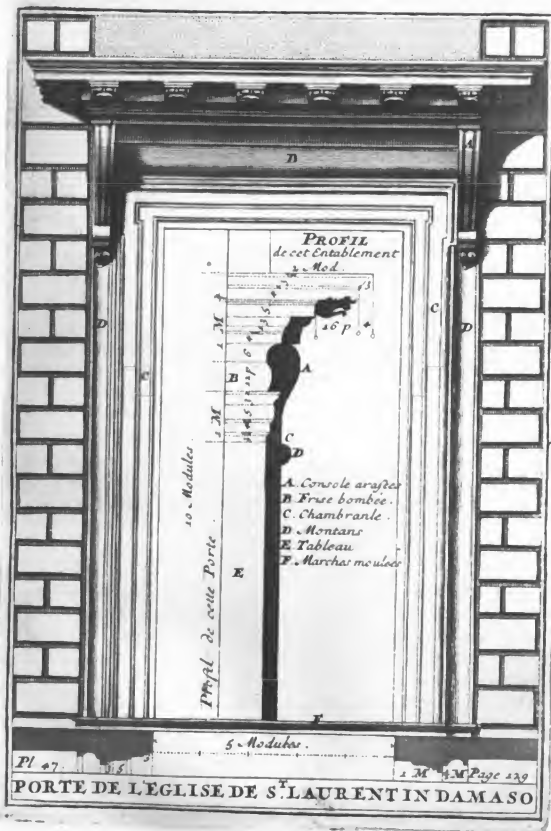 D
A
PROFIL
de cet Entablement
2 Mod.
16 p
4
C
D
D
A
B
C
1 M
1 M
C
D
10 Modules
A Console arasées
B Frise bombée.
C Chambranle.
D Montans
E Tableau
F Marches moulées
E
Profil de cette Porte.
F
5 Modules.
Pl 47.
1 M
Page 129
PORTE DE L'EGLISE DE S.T LAURENT IN DAMASO